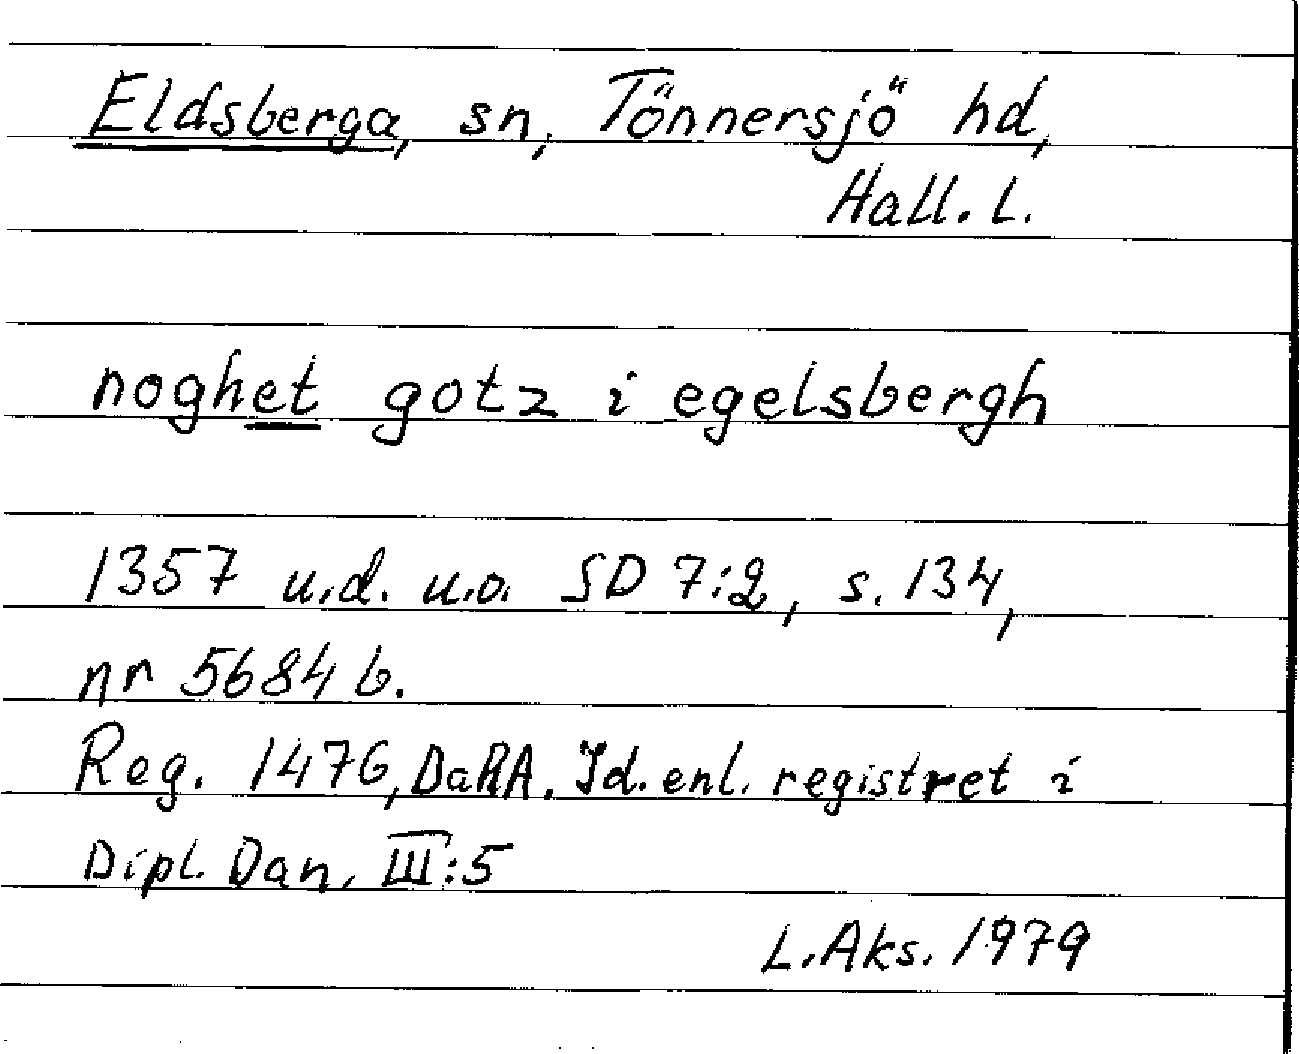 Eldsberga, sn, Tönnersjö hd,
Hall. L.
noghet gotz i egelsbergh
1357 u.d. u.o. SD 7:2, s. 134,
nr 5684 b.
Reg. 1476, DaRA. Id. enl. registret i
Dipl. Dan. III:5
L. Aks. 1979